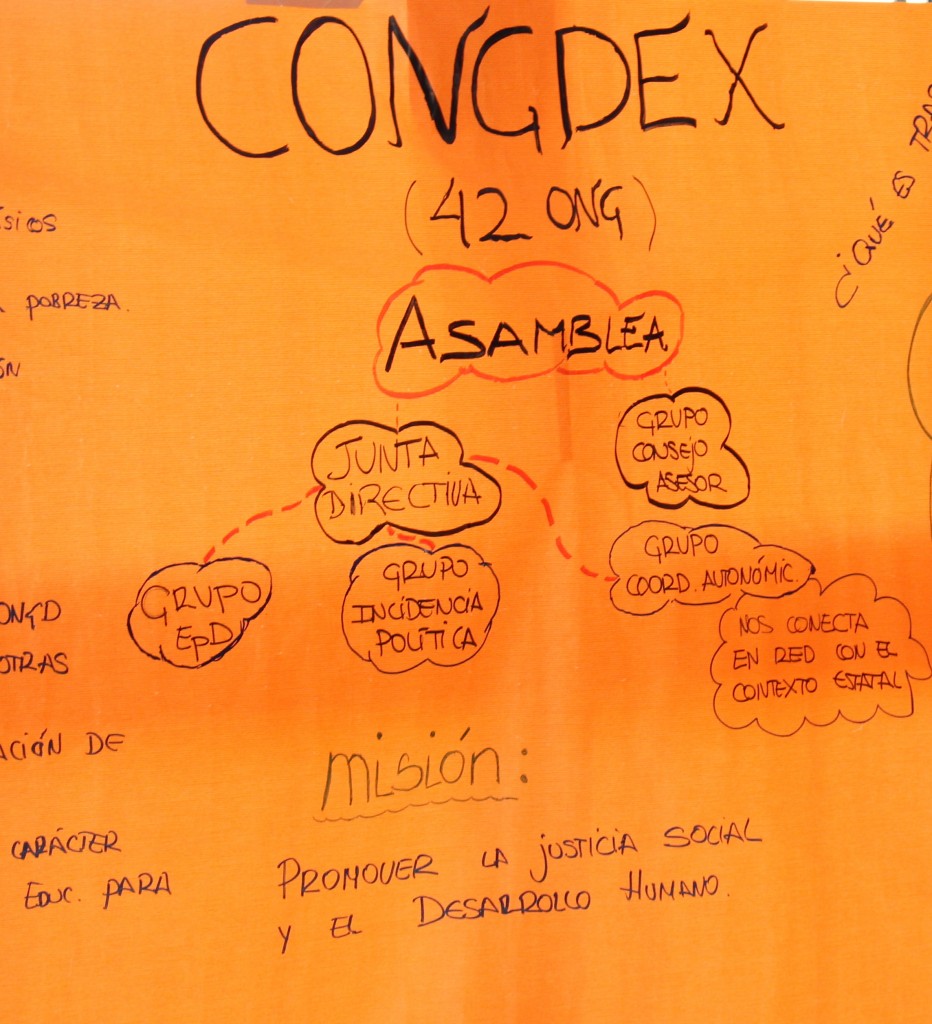 CONGDEX
(42 ONG)
ASAMBLEA
JUNTA
DIRECTIVA
GRUPO
CONSEJO
ASESOR
GRUPO
EpD
GRUPO
INCIDENCIA
POLÍTICA
GRUPO
COORD. AUTONÓMIC.
NOS CONECTA
EN RED CON EL
CONTEXTO ESTATAL
misión:
PROMOVER LA JUSTICIA SOCIAL
Y EL DESARROLLO HUMANO.
POBREZA.
ONGD
OTRAS
ACIÓN DE
CARÁCTER
EDUC. PARA
¿QUÉ ES